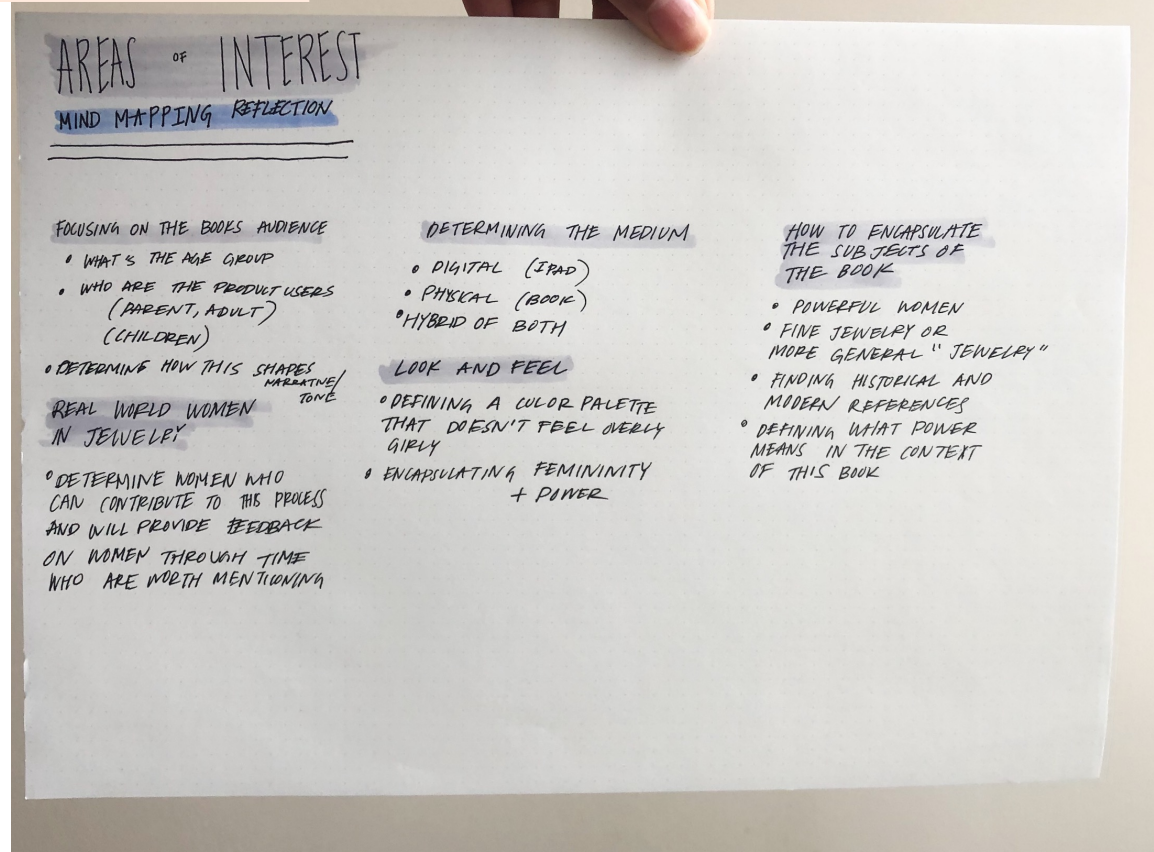 AREAS OF INTEREST
MIND MAPPING REFLECTION
FOCUSING ON THE BOOKS AUDIENCE
• WHAT'S THE AGE GROUP
• WHO ARE THE PRODUCT USERS
(PARENT, ADULT)
(CHILDREN)
• DETERMINING HOW THIS SHAPES
NARRATIVE/
TONE
REAL WORLD WOMEN
IN JEWELRY
• DETERMINE WOMEN WHO
CAN CONTRIBUTE TO THIS PROCESS
AND WILL PROVIDE FEEDBACK
ON WOMEN THROUGH TIME
WHO ARE WORTH MENTIONING
DETERMINING THE MEDIUM
• DIGITAL (IPAD)
• PHYSICAL (BOOK)
• HYBRID OF BOTH
LOOK AND FEEL
• DEFINING A COLOR PALETTE
THAT DOESN'T FEEL OVERLY
GIRLY
• ENCAPSULATING FEMININITY
+ POWER
HOW TO ENCAPSULATE
THE SUBJECTS OF
THE BOOK
• POWERFUL WOMEN
• FINE JEWELRY OR
MORE GENERAL "JEWELRY"
• FINDING HISTORICAL AND
MODERN REFERENCES
• DEFINING WHAT POWER
MEANS IN THE CONTEXT
OF THIS BOOK